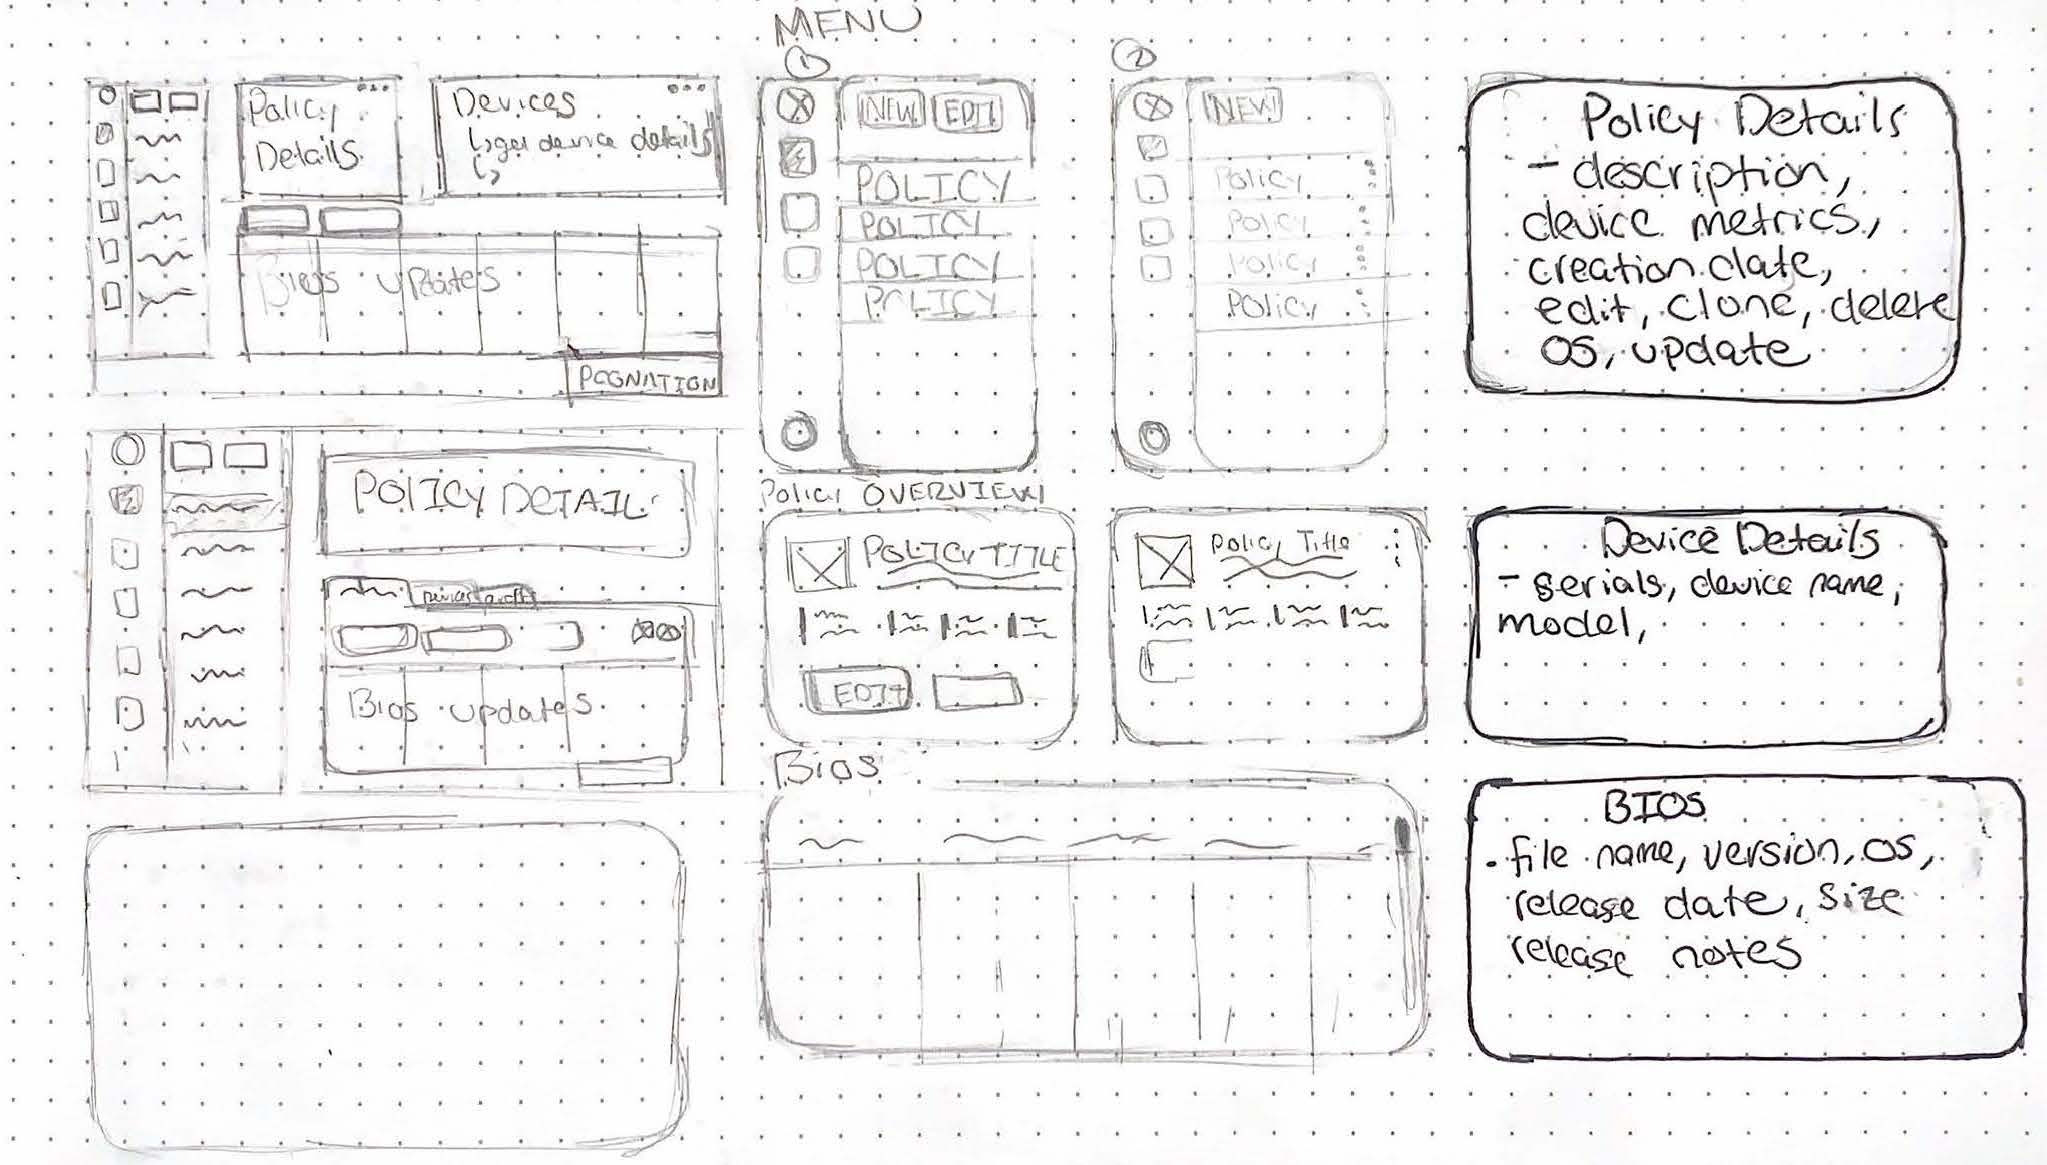 MENU
1
2
Policy
Details
Devices
↳ get device details
↳
Bios updates
NEW
EDIT
POLICY
POLICY
POLICY
POLICY
NEW
Policy
Policy
Policy
Policy
Policy Details
- description,
device metrics,
creation date,
edit, clone, delete
OS, update
POLICY DETAIL
Devices
Bios updates
Policy OVERVIEW
POLICY TITLE
EDIT
Policy Title
Device Details
- serials, device name,
model,
Bios
BIOS
· file name, version, OS,
release date, size
release notes